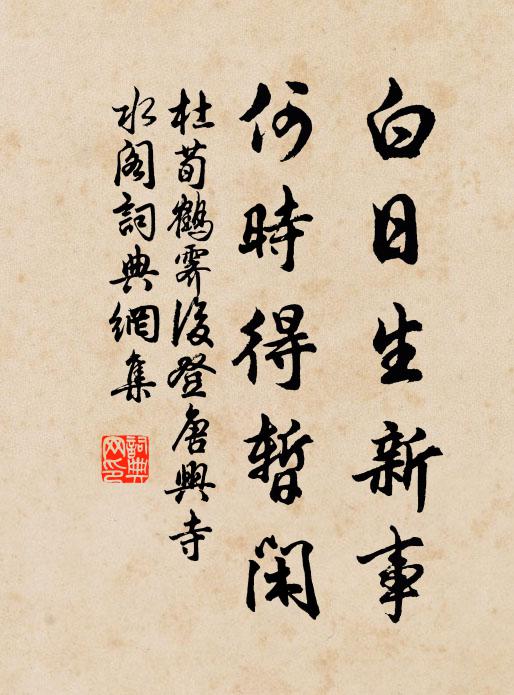 白日生新事
何時得暫閑
杜荀鶴霽後登唐興寺
水閣詞典網集
詞典
网印